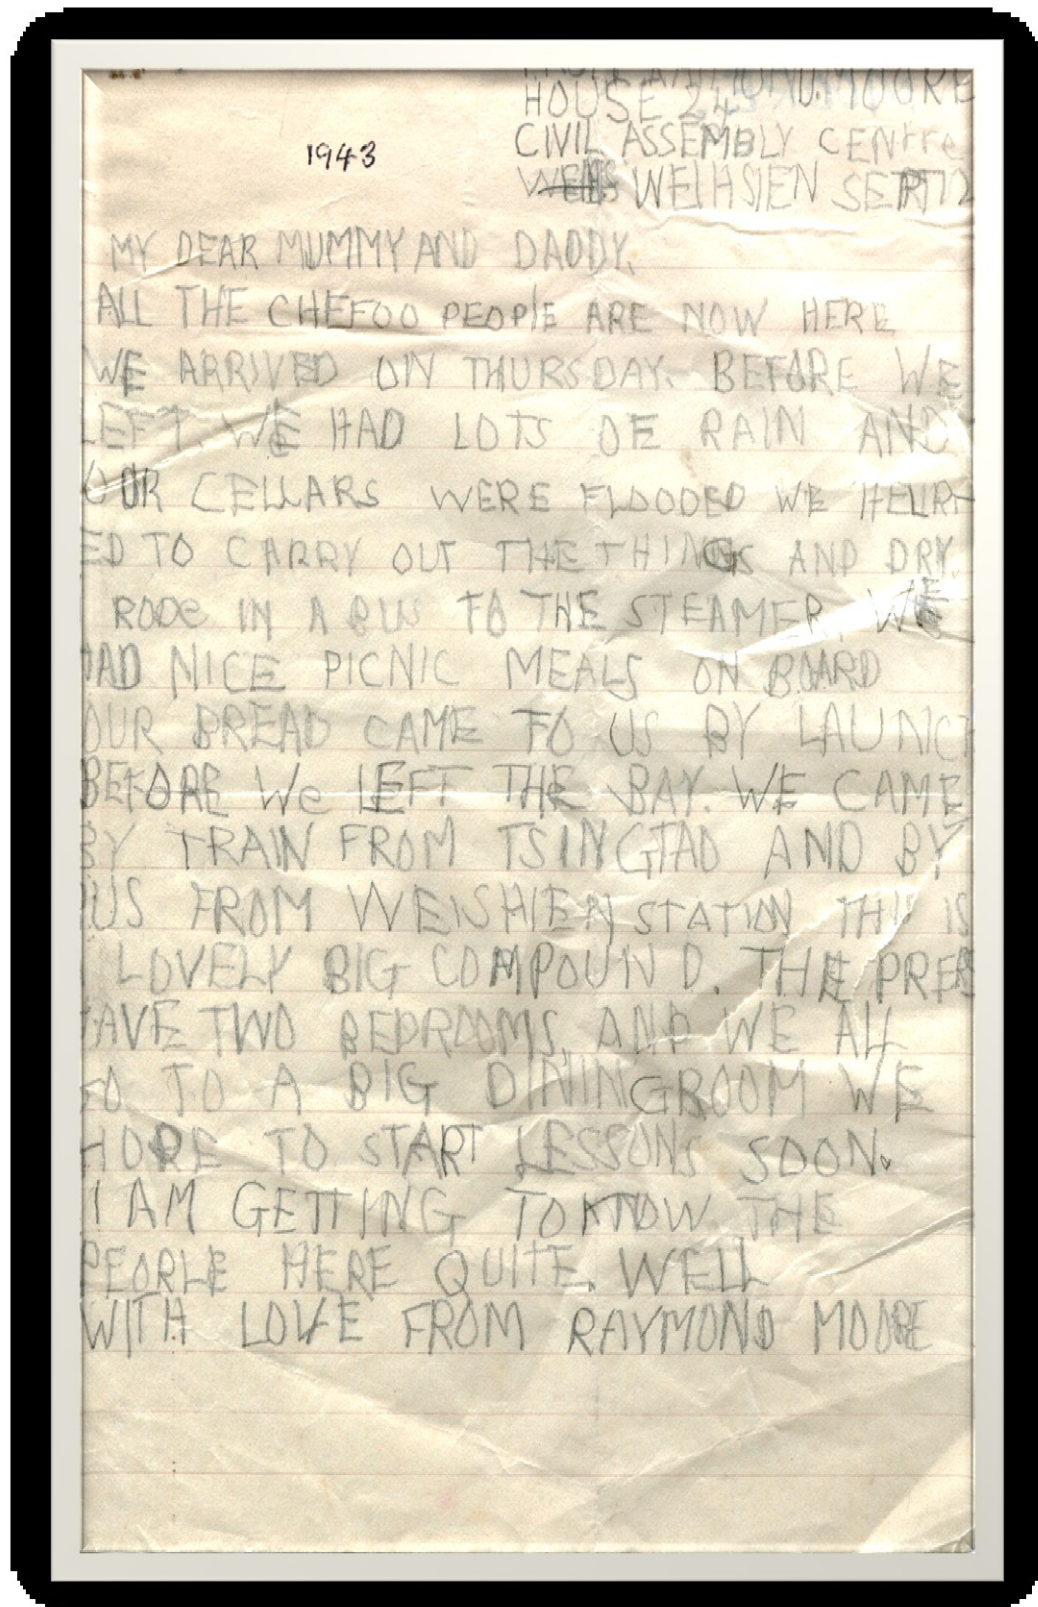 RAYMOND.MOORE
HOUSE 24
CIVIL ASSEMBLY CENTre
1943
WEIHSIEN SEPT12
MY DEAR MUMMY AND DADDY,
ALL THE CHEFOO PEOPlE ARE NOW HERE
WE ARRIVED ON THURSDAY. BEFORE WE
LEFT. WE HAD LOTS OF RAIN AND
OUR CELLARS WERE FLOODED WE HELP
ED TO CARRY OUT THE THINGS AND DRY.
RODe IN A BUS TO THE STEAMER. WE
HAD NICE PICNIC MEALS ON BOARD
OUR BREAD CAME TO US BY LAUNCH
BEFORE We LEFT THE BAY. WE CAME
BY TRAIN FROM TSINGTAO AND BY
US FROM WEISHIEN STATION THIS IS
LOVELY BIG COMPOUND. THE PREP
HAVE TWO BEDROOMS. AND WE ALL
GO TO A BIG DININGROOM WE
HOPE TO START LESSONS SOON.
I AM GETTING TO KNOW THE
PEOPLE HERE QUITE. WELL
WITH LOVE FROM RAYMOND MOORE